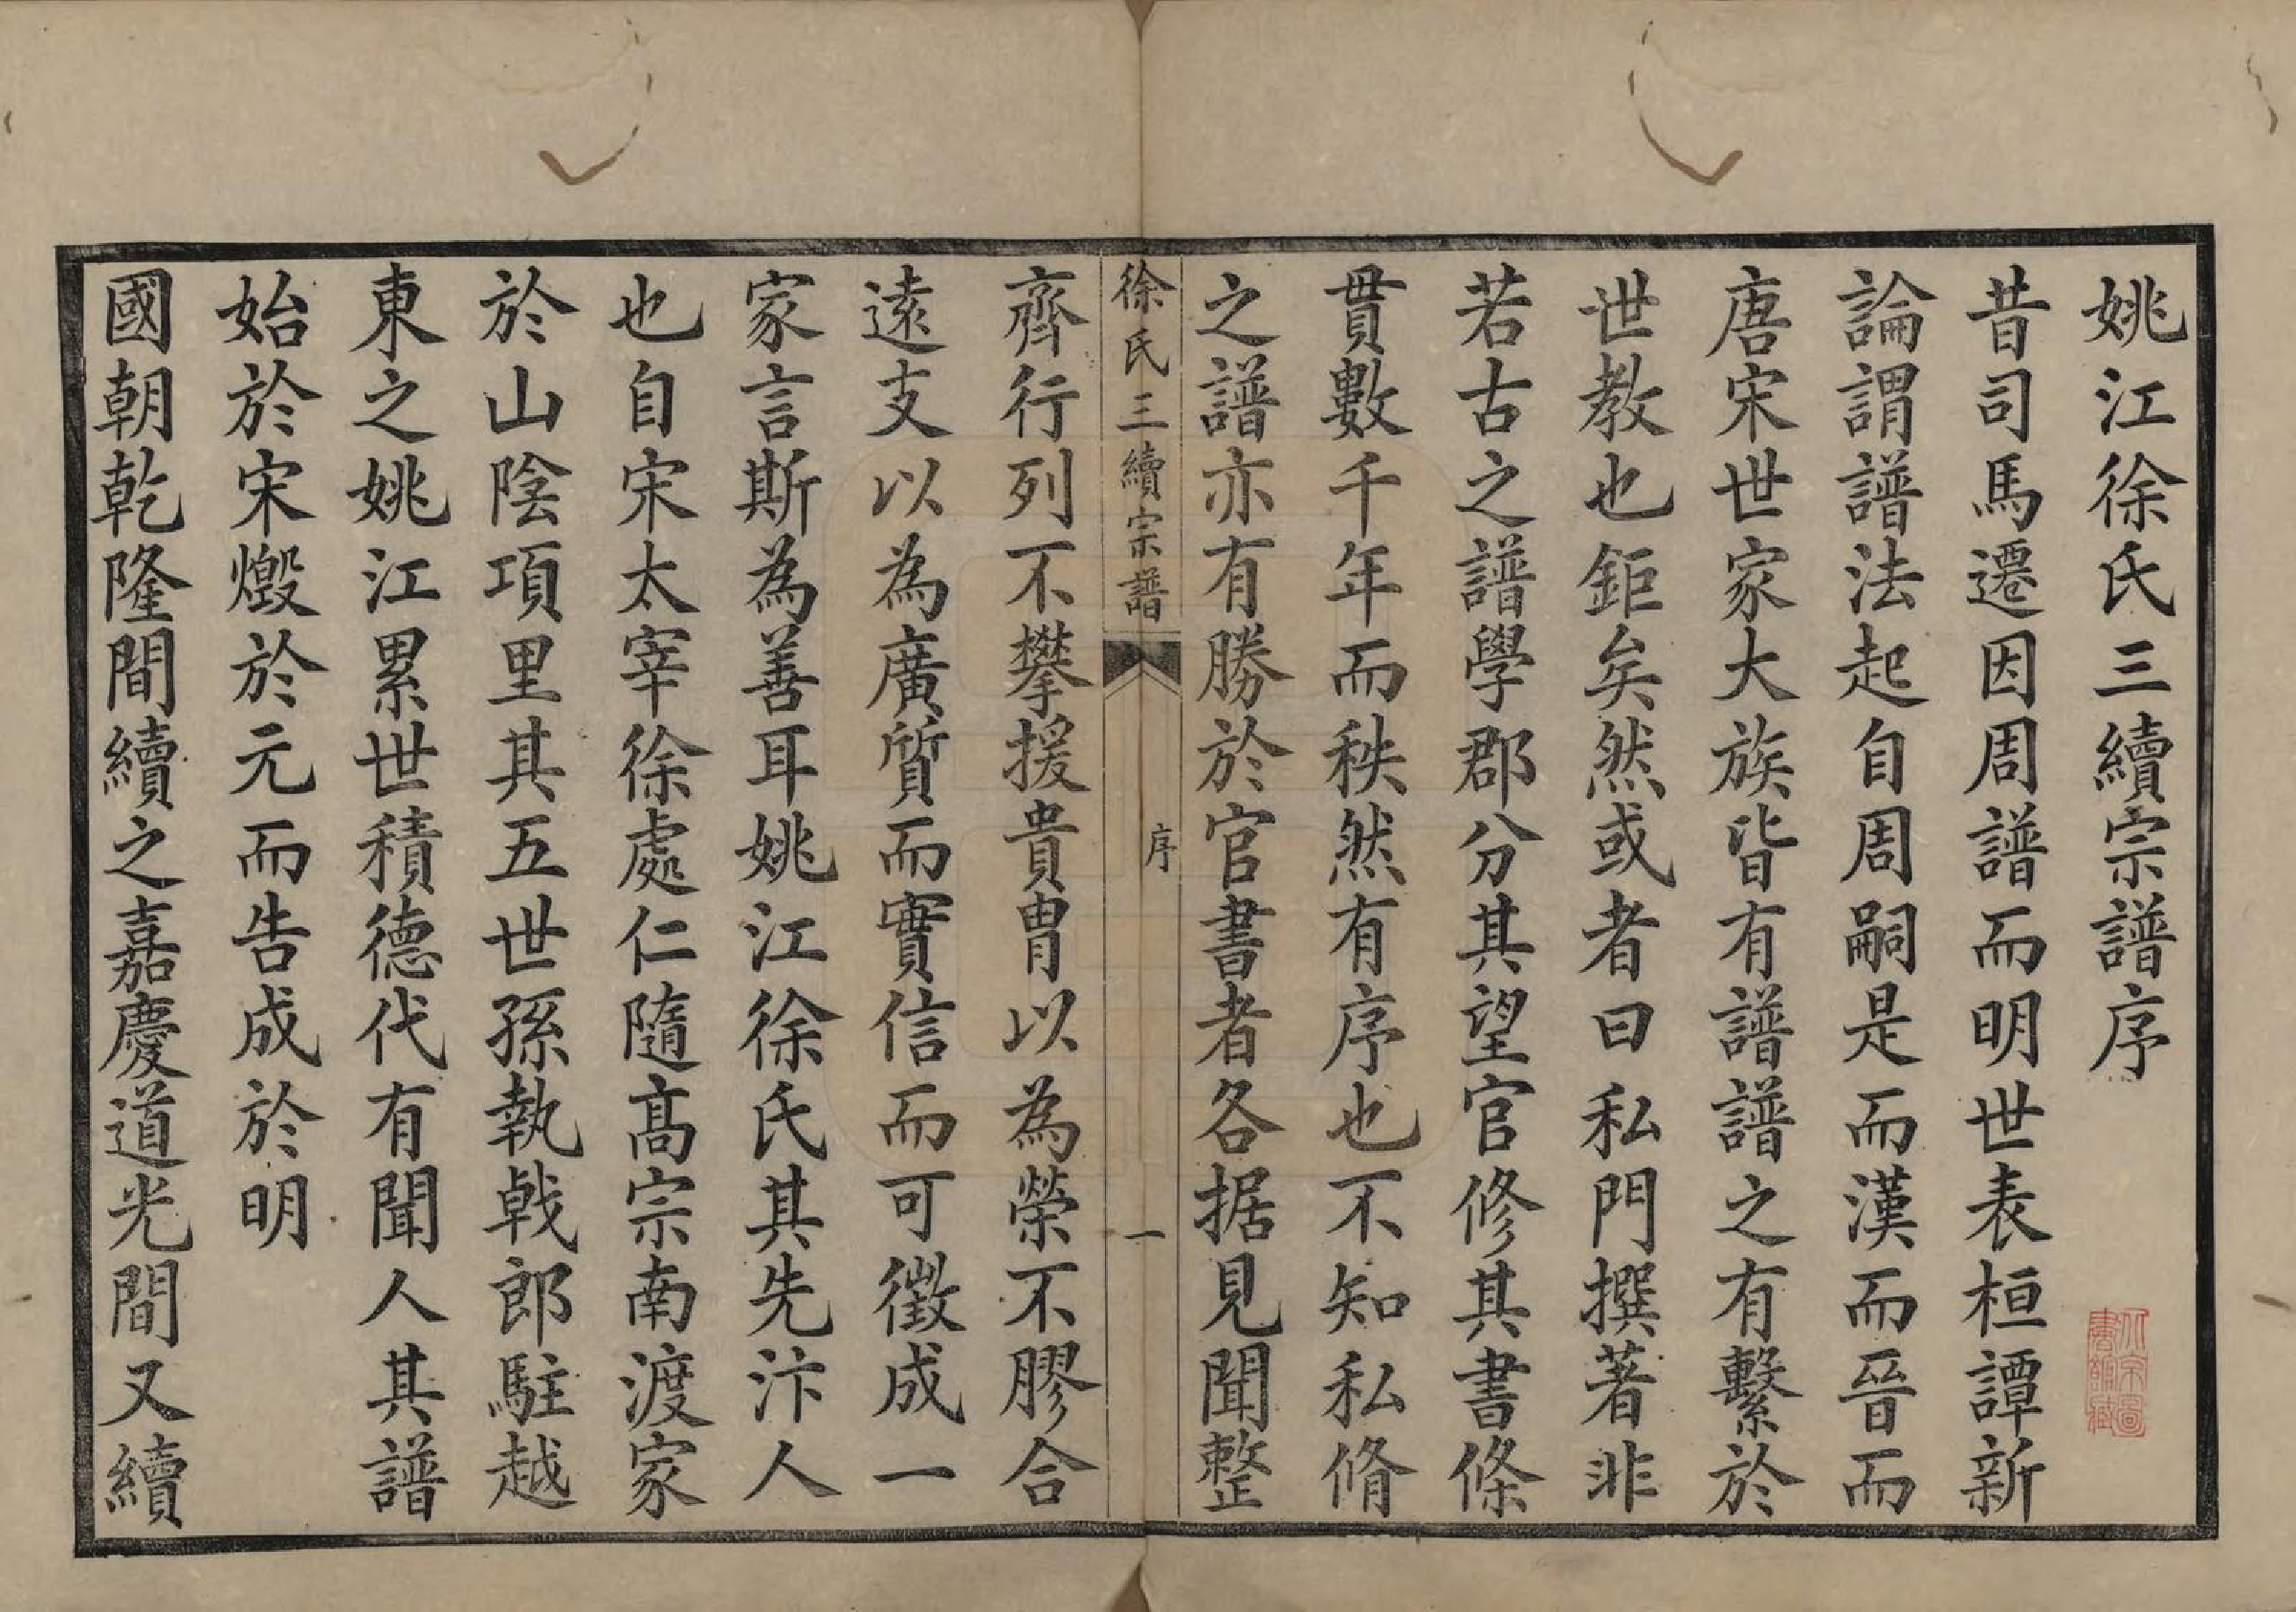 姚江徐氏三續宗譜序
昔司馬遷因周譜而明世表桓譚新
論謂譜法起自周嗣是而漢而晉而
唐宋世家大族皆有譜譜之有繫於
世教也鉅矣然或者曰私門撰著非
若古之譜學郡分其望官修其書條
貫數千年而秩然有序也不知私脩
之譜亦有勝於官書者各据見聞整
徐氏三續宗譜
序
一
齊行列不攀援貴胄以為榮不膠合
遠支以為廣質而實信而可徵成一
家言斯為善耳姚江徐氏其先汴人
也自宋太宰徐處仁隨高宗南渡家
於山陰項里其五世孫執戟郎駐越
東之姚江累世積德代有聞人其譜
始於宋燬於元而告成於明
國朝乾隆間續之嘉慶道光間又續